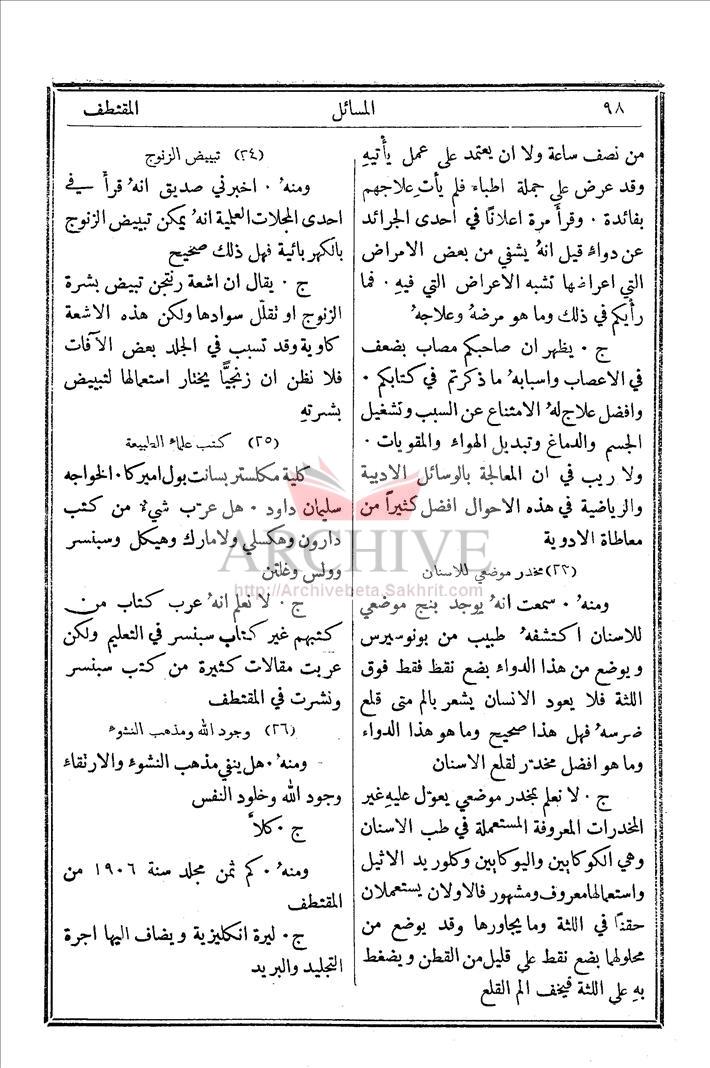 ٩٨
المسائل
المقتطف
من نصف ساعة ولا ان يعتمد على عمل يأتيهِ
وقد عرض على جملة اطباء فلم يأتِ علاجهم
بفائدة ٠ وقرأ مرة اعلانًا في احدى الجرائد
عن دواءٍ قيل انهُ يشفي من بعض الامراض
التي اعراضها تشبه الاعراض التي فيهِ ٠ فما
رأيكم في ذلك وما هو مرضهُ وعلاجهُ
ج ٠ يظهر ان صاحبكم مصاب بضعف
في الاعصاب واسبابهُ ما ذكرتم في كتابكم ٠
وافضل علاج لهُ الامتناع عن السبب وتشغيل
الجسم والدماغ وتبديل الهواء والمقويات ٠
ولا ريب في ان المعالجة بالوسائل الادبية
والرياضية في هذه الاحوال افضل كثيرًا من
معاطاة الادوية
(٢٣) مخدر موضعي للاسنان
ومنهُ ٠ سمعت انهُ يوجد بنج موضعي
للاسنان اكتشفهُ طبيب من بونوسيرس
ويوضع من هذا الدواء بضع نقط فقط فوق
اللثة فلا يعود الانسان يشعر بالم متى قلع
ضرسهُ فهل هذا صحيح وما هو هذا الدواء
وما هو افضل مخدّر لقلع الاسنان
ج ٠ لا نعلم بمخدر موضعي يعوّل عليهِ غير
المخدرات المعروفة المستعملة في طب الاسنان
وهي الكوكايين واليوكايين وكلوريد الاثيل
واستعمالها معروف ومشهور فالاولان يستعملان
حقنًا في اللثة وما يجاورها وقد يوضع من
محلولهما بضع نقط على قليل من القطن ويضغط
بهِ على اللثة فيخف الم القلع
(٢٤) تبييض الزنوج
ومنهُ ٠ اخبرني صديق انهُ قرأ في
احدى المجلات العلمية انهُ يمكن تبييض الزنوج
بالكهربائية فهل ذلك صحيح
ج ٠ يقال ان اشعة رنتجن تبيض بشرة
الزنوج او تقلّل سوادها ولكن هذه الاشعة
كاوية وقد تسبب في الجلد بعض الآفات
فلا نظن ان زنجيًّا يختار استعمالها لتبييض
بشرتهِ
(٢٥) كتب علماء الطبيعة
كلية مكلستر بسانت بول اميركا ٠ الخواجه
سليمان داود ٠ هل عرّب شيءٌ من كتب
دارون وهكسلي ولامارك وهيكل وسبنسر
وولس وغلتن
ج ٠ لا نعلم انهُ عرب كتاب من
كتبهم غير كتاب سبنسر في التعليم ولكن
عربت مقالات كثيرة من كتب سبنسر
ونشرت في المقتطف
(٢٦) وجود الله ومذهب النشوء
ومنهُ ٠ هل ينفي مذهب النشوء والارتقاء
وجود الله وخلود النفس
ج ٠ كلاَّ
ومنهُ ٠ كم ثمن مجلد سنة ١٩٠٦ من
المقتطف
ج ٠ ليرة انكليزية ويضاف اليها اجرة
التجليد والبريد
ARCHIVE
http://Archivebeta.Sakhrit.com